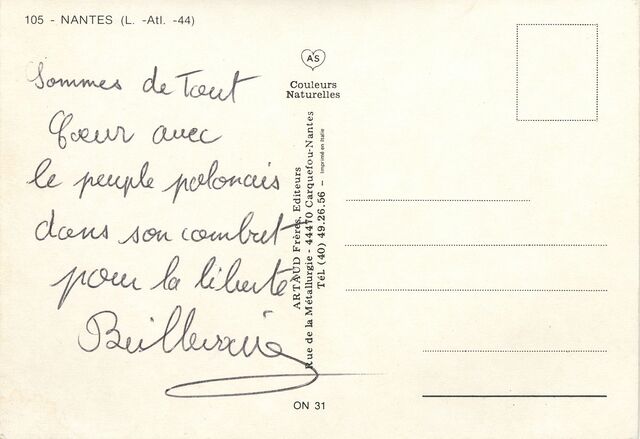 105 - NANTES (L. -Atl. -44)
Sommes de tout
Cœur avec
le peuple polonais
dans son combat
pour la liberté
AS
Couleurs
Naturelles
ARTAUD Frères, Editeurs
Rue de la Métallurgie - 44470 Carquefou-Nantes
Tél. (40) 49.26.56 - Imprimé en Italie
ON 31